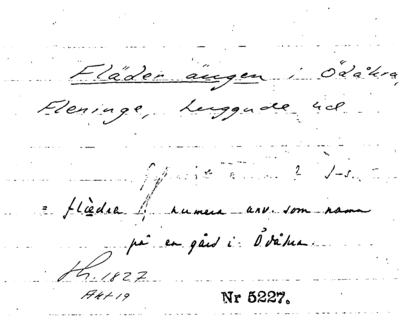 Fläder ängen i Ödåkra,
Fleninge, Luggude hd
? S-s.
= flædra numera anv. som namn
på en gård i Ödåkra.
Hh. 1827
Akt 19
Nr 5227.